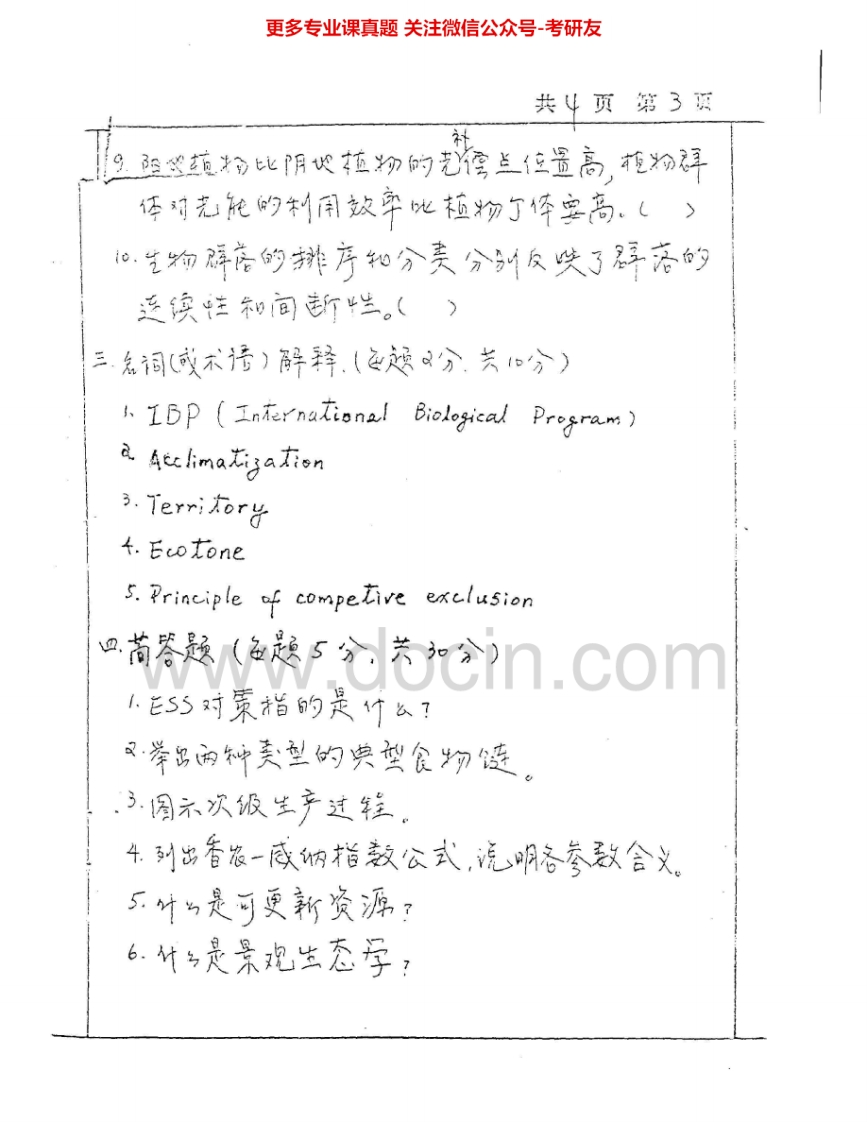 更多专业课真题 关注微信公众号-考研友
共4页 第3页
9. 阳地植物比阴地植物的光补偿点位置高,植物群
体对光能的利用效率比植物个体要高。( )
10. 生物群落的排序和分类分别反映了群落的
连续性和间断性。( )
三.名词(或术语)解释.(每题2分.共10分)
1. IBP ( International Biological Program)
2. Acclimatization
3. Territory
4. Ecotone
5. Principle of competive exclusion
四.简答题 (每题5分,共30分)
www.docin.com
1. ESS对策指的是什么?
2.举出两种类型的典型食物链。
3.图示次级生产过程。
4. 列出香农-威纳指数公式,说明各参数含义。
5. 什么是可更新资源?
6. 什么是景观生态学?